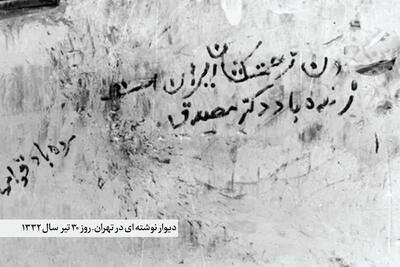 زحمتکشان ایران است
زنده باد دکتر مصدق
مرده باد قوام
دیوار نوشته ای در تهران. روز ۳۰ تیر سال ۱۳۳۲